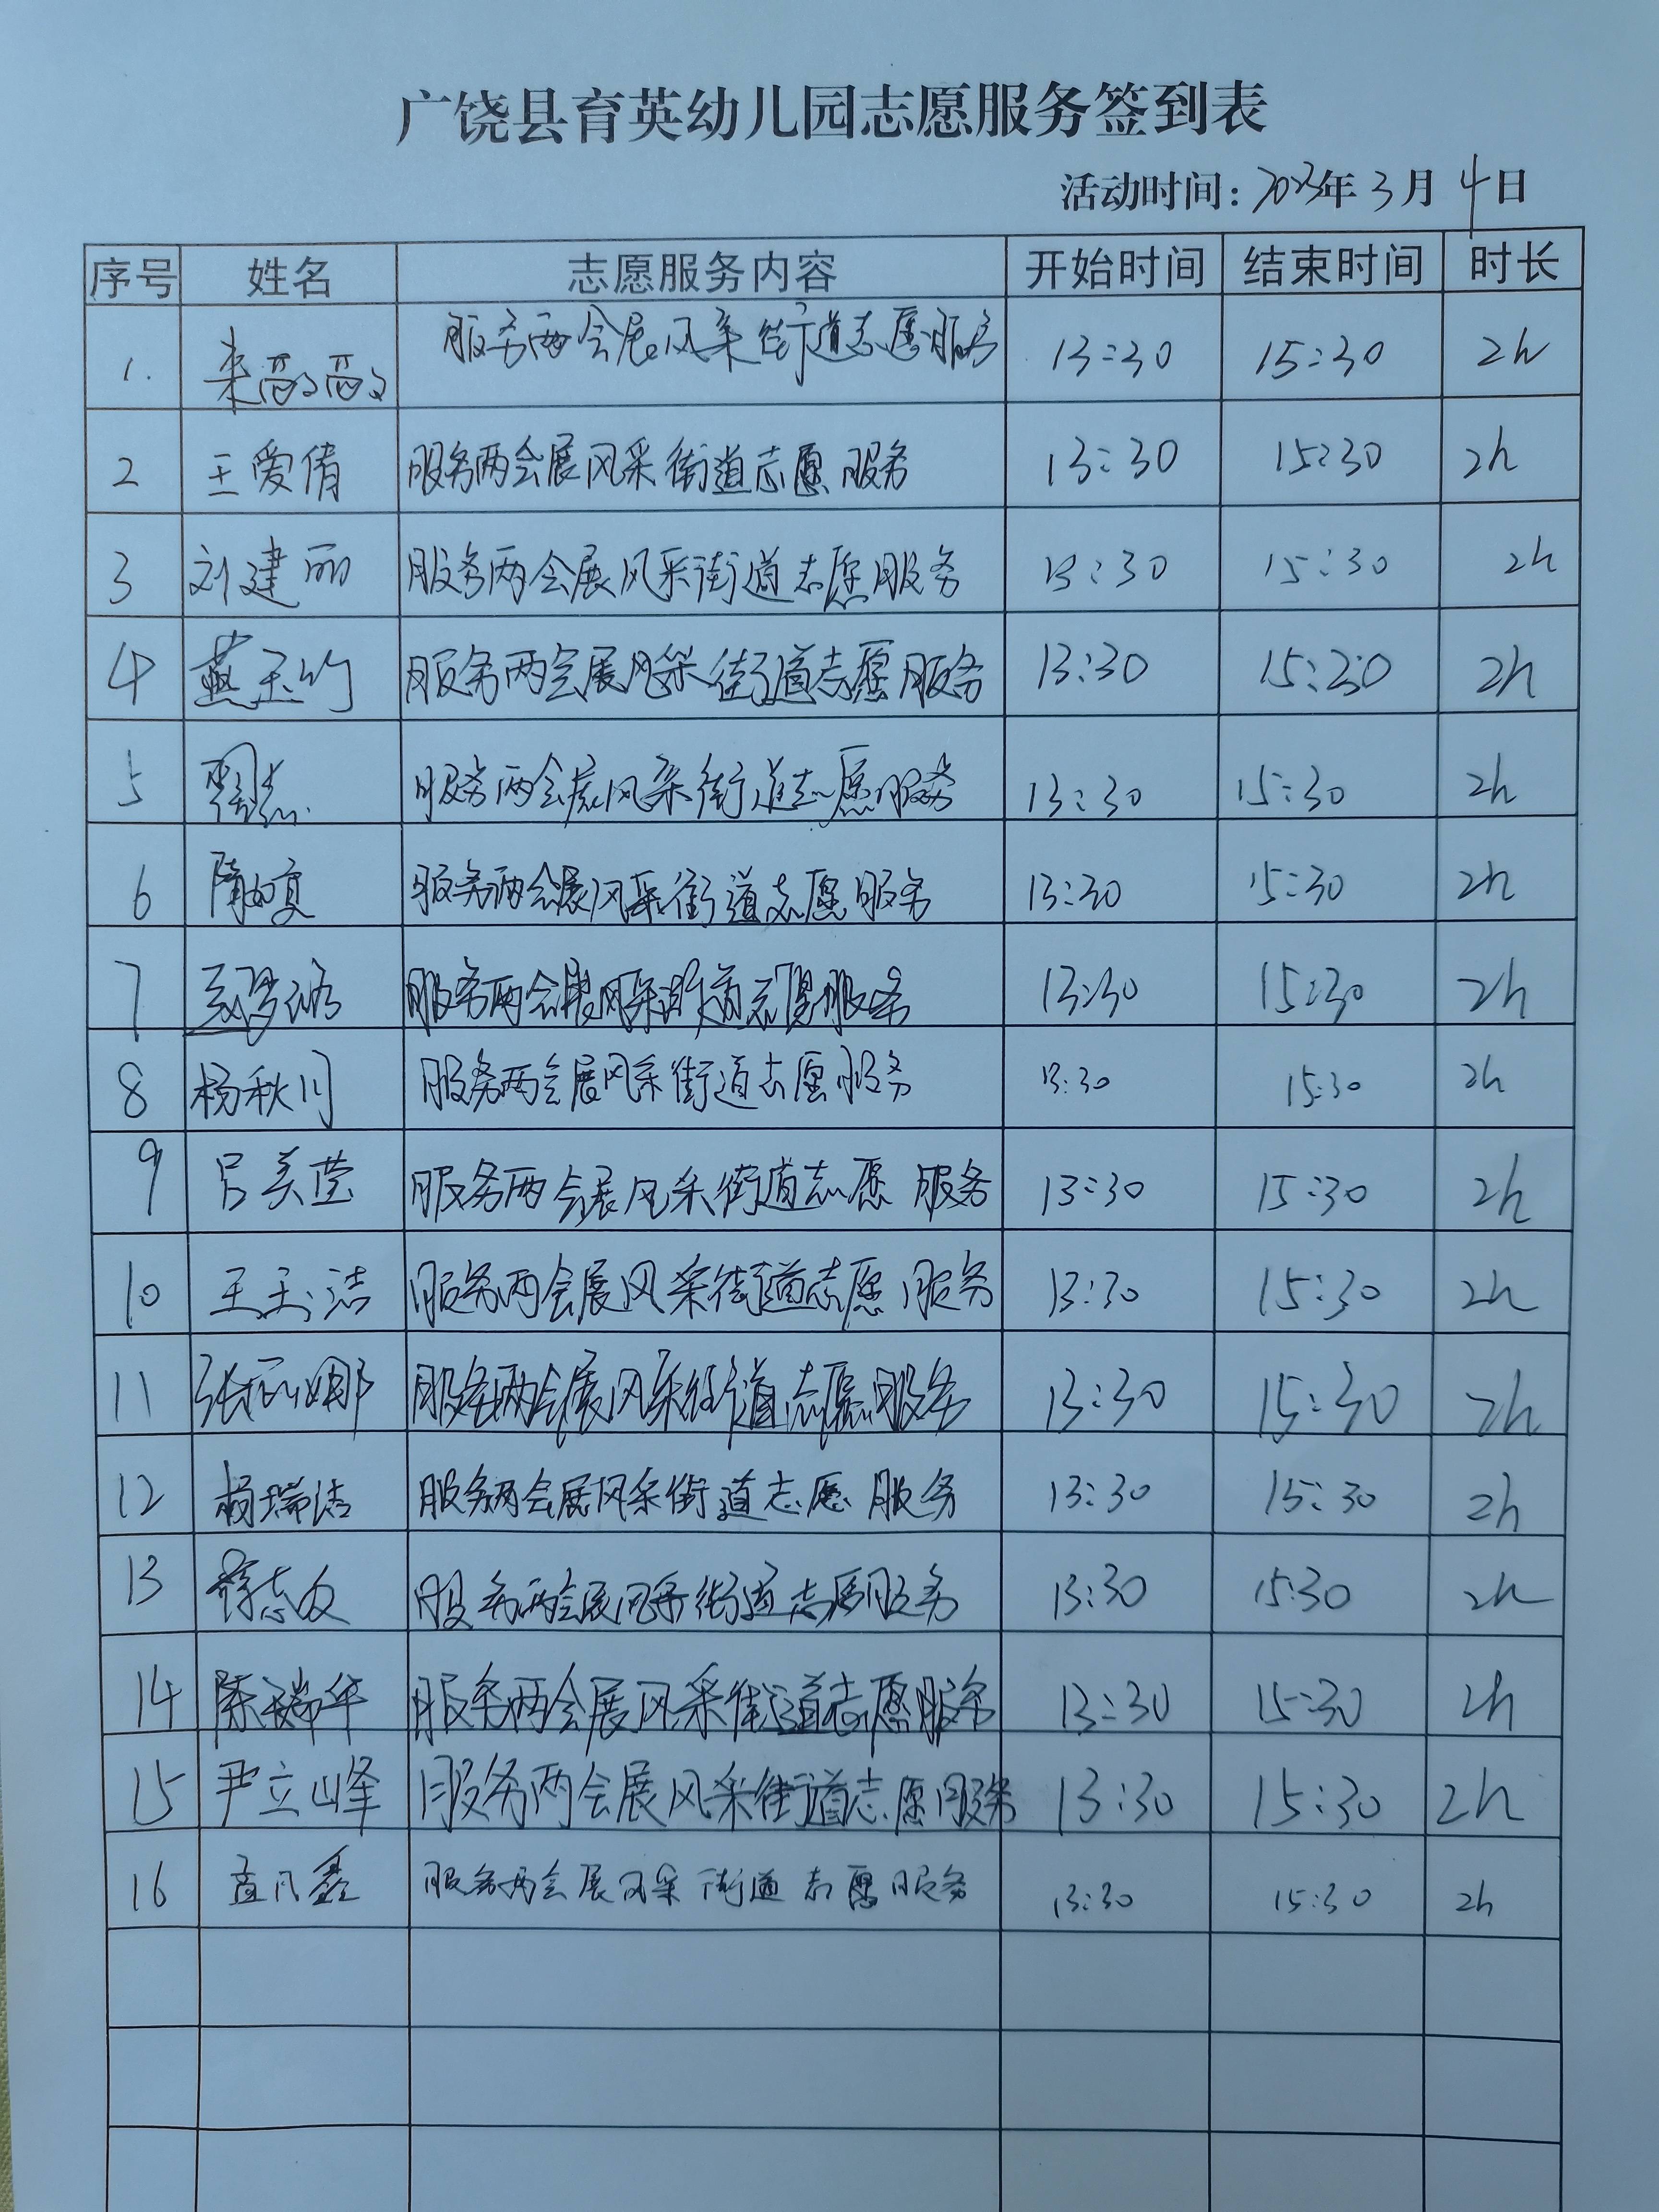 广饶县育英幼儿园志愿服务签到表
活动时间: 2023年 3 月 4 日
序号 姓名 志愿服务内容 开始时间 结束时间 时长
1. 服务两会展风采街道志愿服务 13:30 15:30 2h
2 王爱倩 服务两会展风采街道志愿服务 13:30 15:30 2h
3 刘建丽 服务两会展风采街道志愿服务 13:30 15:30 2h
4 燕玉竹 服务两会展风采街道志愿服务 13:30 15:30 2h
5 服务两会展风采街道志愿服务 13:30 15:30 2h
6 服务两会展风采街道志愿服务 13:30 15:30 2h
7 服务两会展风采街道志愿服务 13:30 15:30 2h
8 杨秋月 服务两会展风采街道志愿服务 13:30 15:30 2h
9 吕美莹 服务两会展风采街道志愿服务 13:30 15:30 2h
10 王玉洁 服务两会展风采街道志愿服务 13:30 15:30 2h
11 张丽娜 服务两会展风采街道志愿服务 13:30 15:30 2h
12 杨瑞洁 服务两会展风采街道志愿服务 13:30 15:30 2h
13 服务两会展风采街道志愿服务 13:30 15:30 2h
14 陈瑞华 服务两会展风采街道志愿服务 13:30 15:30 2h
15 尹立峰 服务两会展风采街道志愿服务 13:30 15:30 2h
16 孟凡鑫 服务两会展风采街道志愿服务 13:30 15:30 2h